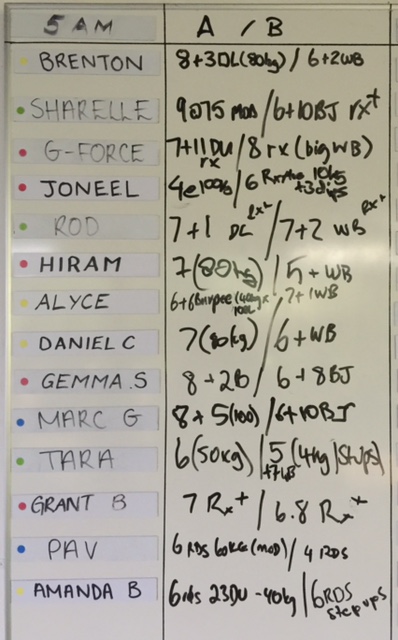 5 AM A / B
BRENTON 8+3DL(80kg) / 6+2WB
SHARELLE 9@75 MOD / 6+10BJ rx+
G-FORCE 7+11DU / 8 rx (big WB)
rx
JONEEL 4@100% / 6 10kg
+3dips
ROD 7+1 DL Rx+ / 7+2 WB Rx+
HIRAM 7(80kg) / 5 + WB
ALYCE 6+6Burpee (40kg / 7+1WB
DANIEL C 7(80kg) / 6+WB
GEMMA.S 8+2B / 6+8BJ
MARC G 8+5(100) / 6+10BJ
TARA 6(50kg) / 5 (4kg/Stups)
+7WB
GRANT B 7 Rx+ / 6.8 Rx+
PAV 6 RDS 60KG (MOD) / 4 RDS
AMANDA B 6rds 23DU - 40kg / 6RDS
step ups